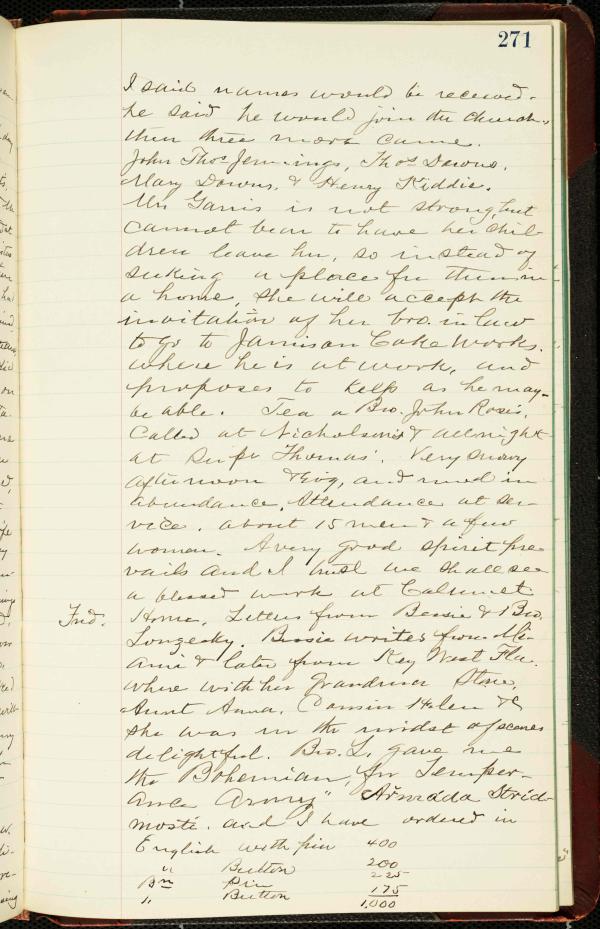 271
I said names would be received.
he said he would join the church,
then three more came.
John Thos Jennings, Thos Downs,
Mary Downs, & Henry Kiddie.
Mrs Garris is not strong, but
cannot bear to have her chil-
dren leave her, so instead of
seeking a place for them in
a home, she will accept the
invitation of her bro. in law
to go to Jamison Coke Works.
where he is at work, and
proposes to help as he may
be able. Tea a Bro. John Rosis.
Called at Nicholson's & all night
at Supt Thomas'. Very snowy
afternoon & Evg, and mud in
abundance. Attendance at ser-
vice, about 15 men & a few
women. A very good spirit pre
vails and I trust we shall see
a blessed work at Calumet
Home. Letters from Bessie & Bro.
Longecky. Bessie writes from Mi-
ami & later from Key West Fla.
where with her Grandma Stone,
Aunt Anna, Cousin Helen &c
she was in the midst of scenes
delightful. Bro. L. gave me
the Bohemian, for Temper-
ance Army" Armáda Strid-
mosti. and I have ordered in
English with pin 400
" Button 200
Bn Pin 225
" Button 175
1,000